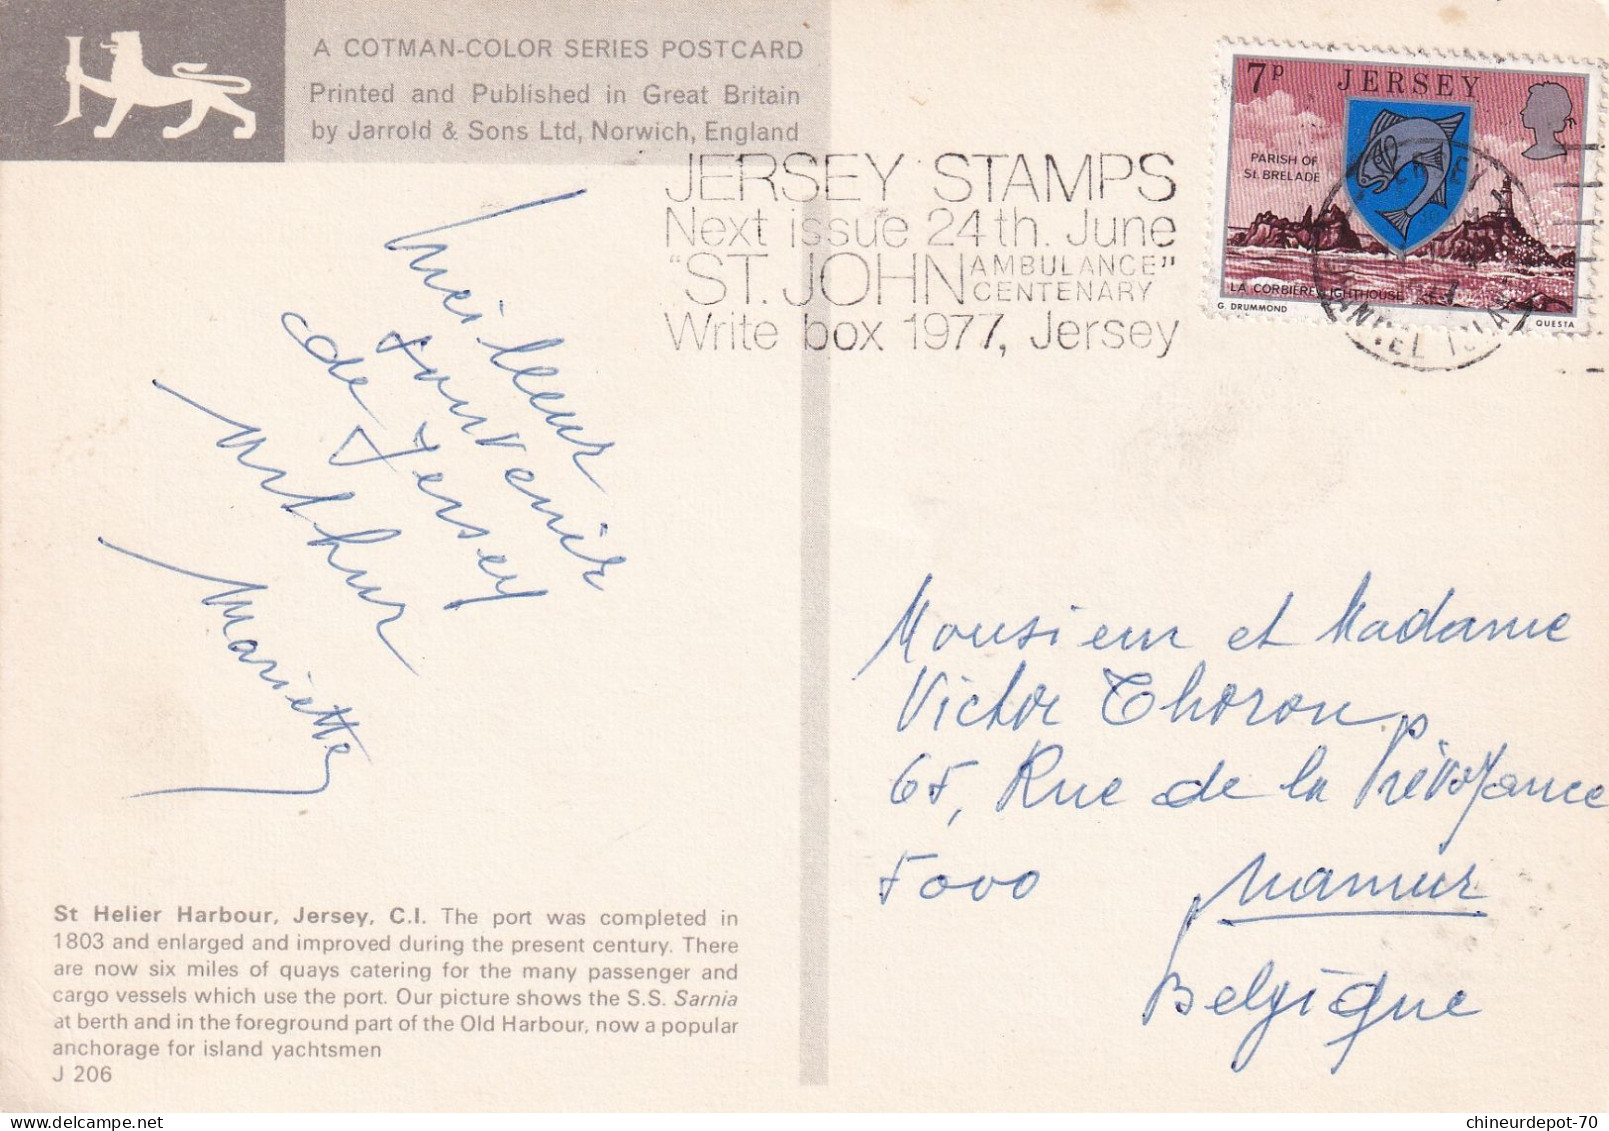 A COTMAN-COLOR SERIES POSTCARD
Printed and Published in Great Britain
by Jarrold & Sons Ltd, Norwich, England
JERSEY STAMPS
Next issue 24th. June
"ST. JOHN AMBULANCE CENTENARY"
Write box 1977, Jersey
7p JERSEY
PARISH OF
St. BRELADE
LA CORBIÈRE LIGHTHOUSE
G. DRUMMOND
QUESTA
JERSEY
CHANNEL ISLANDS
Meilleur
souvenir
de Jersey
Arthur
Mariette
Monsieur et Madame
Victor Thoron
65, Rue de la Prévoyance
5000 Namur
Belgique
St Helier Harbour, Jersey, C.I. The port was completed in
1803 and enlarged and improved during the present century. There
are now six miles of quays catering for the many passenger and
cargo vessels which use the port. Our picture shows the S.S. Sarnia
at berth and in the foreground part of the Old Harbour, now a popular
anchorage for island yachtsmen
J 206
chineurdepot-70